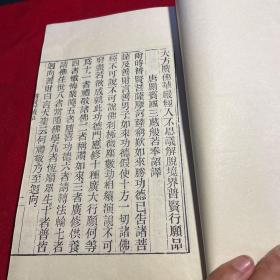 大方廣佛華嚴經入不思議解脫境界普賢行願品
唐罽賓國三藏般若奉詔譯
爾時普賢菩薩摩訶薩稱歎如來勝功德已告諸菩
薩及善財言善男子如來功德假使十方一切諸佛
經不可說不可說佛刹極微塵數劫相續演說不可
窮盡若欲成就此功德門應修十種廣大行願何等
爲十一者禮敬諸佛二者稱讚如來三者廣修供養
四者懺悔業障五者隨喜功德六者請轉法輪七者
請佛住世八者常隨佛學九者恆順眾生十者普皆
迴向善財白言大聖云何禮敬乃至迴向